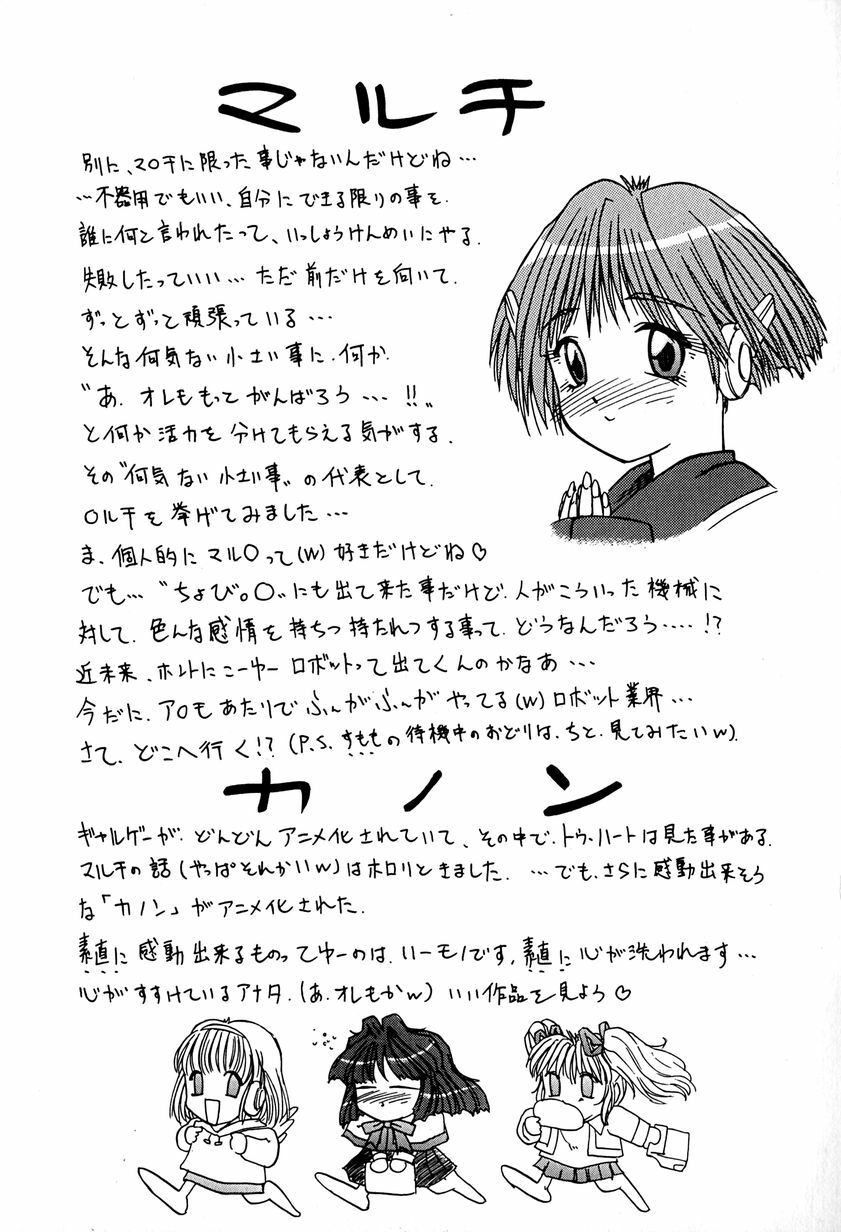 マルチ
別に、マ○チに限った事じゃないんだけどね…
…不器用でもいい、自分にできる限りの事を.
誰に何と言われたって、いっしょうけんめいにやる.
失敗したっていい…ただ前だけを向いて.
ずっとずっと頑張っている…
そんな何気ない小さい事に、何か.
〝あ.オレももっとがんばろう…!!〟
と何か活力を分けてもらえる気がする.
その〝何気ない小さい事〟の代表として.
○ルチを挙げてみました…
ま、個人的にマル○って(w)好きだけどね♡
でも…〝ちょび。○〟にも出て来た事だけど、人がこういった機械に
対して.色んな感情を持ちつ持たれつする事って.どうなんだろう…!?
近未来、ホントにこーゆーロボットって出てくんのかなあ…
今だに.ア○もあたりでふんがふんがやってる(w)ロボット業界…
さて、どこへ行く!?(P.S.すももの待機中のおどりは、ちと、見てみたいw).
カノン
ギャルゲーが.どんどんアニメ化されていて、その中で.トゥ.ハートは見た事がある.
マルチの話(やっぱそれかいw)はホロリときました.…でも、さらに感動出来そう
な「カノン」がアニメ化された.
素直に感動出来るものってゆーのは.いーモノです,素直に心が洗われます…
心がすすけているアナタ.(あ.オレもかw)いい作品を見よう♡